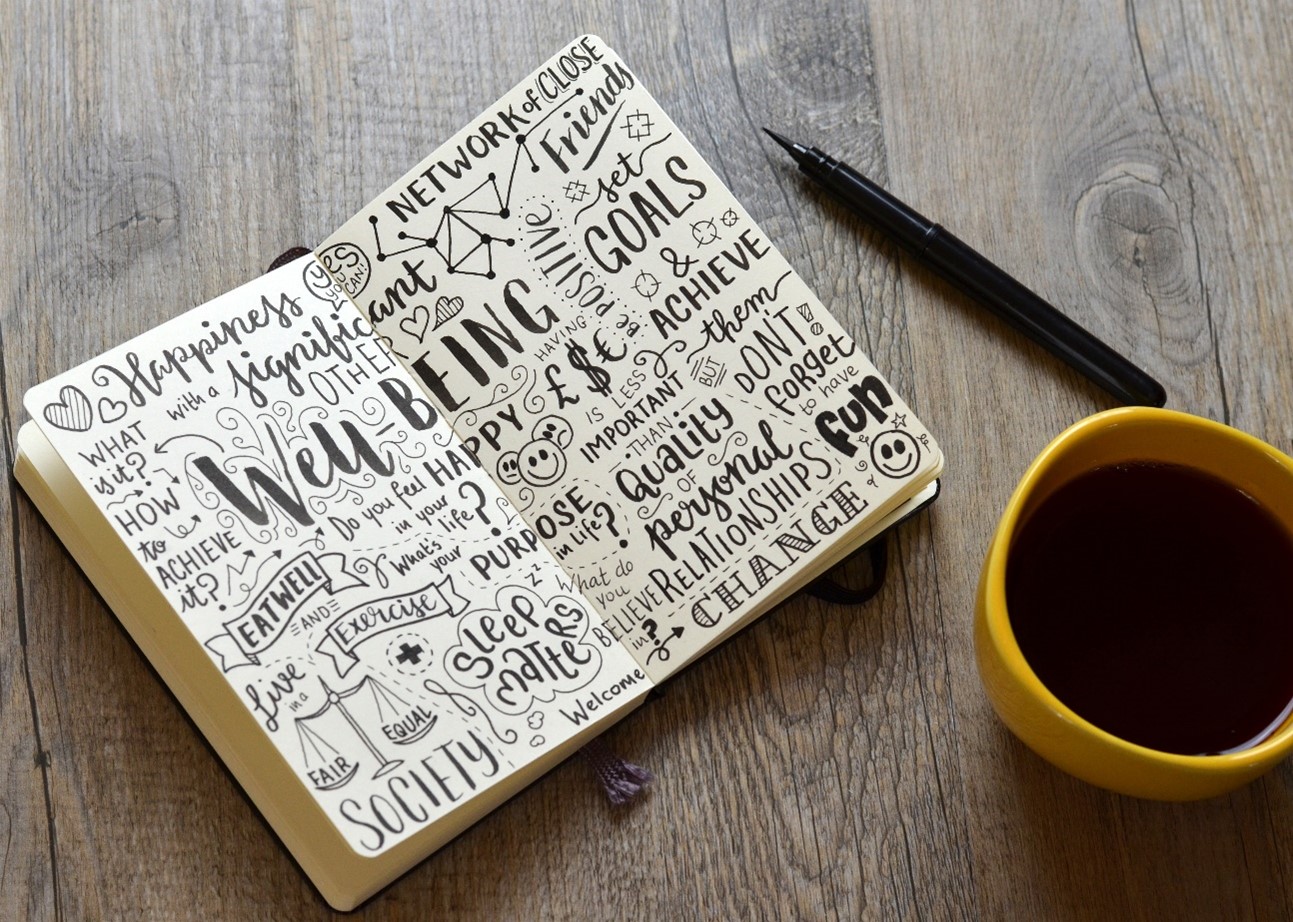 YES
you
CAN!
Happiness
with a significant
OTHER
WHAT
is it?
HOW
to
ACHIEVE
it?
Well-BEING
Do you feel HAPPY
in your
life?
EAT WELL
AND
Exercise
What's
your
PURPOSE
in life?
z z z
Sleep
matters
Live
in a
FAIR
EQUAL
SOCIETY
What do
you
BELIEVE
in?
Welcome
CHANGE
NETWORK of CLOSE
Friends
set
GOALS
&
ACHIEVE
them
BUT
DON'T!
forget
to have
fun
HAVING POSITIVE
£ $ €
IS LESS
IMPORTANT
THAN
Quality
OF
personal
RELATIONSHIPS